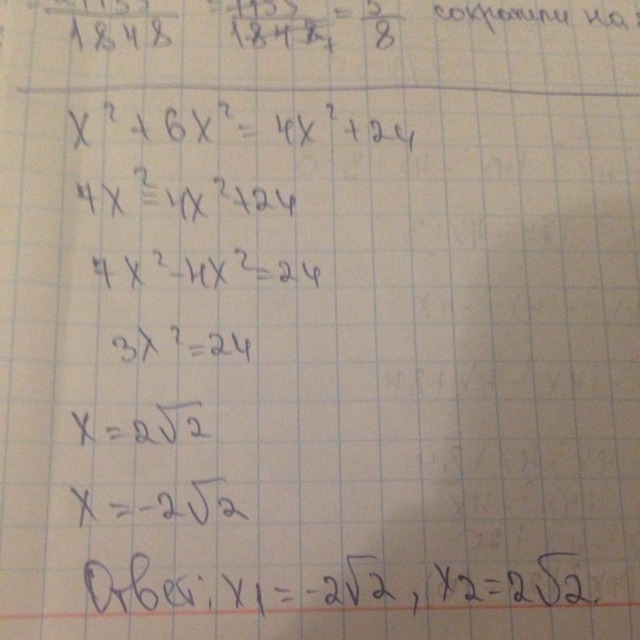 1848 1848 = 5/8 сократили на
x² + 6x² = 4x² + 24
7x² = 4x² + 24
7x² - 4x² = 24
3x² = 24
x = 2√2
x = -2√2
Ответ: x1 = -2√2, x2 = 2√2.